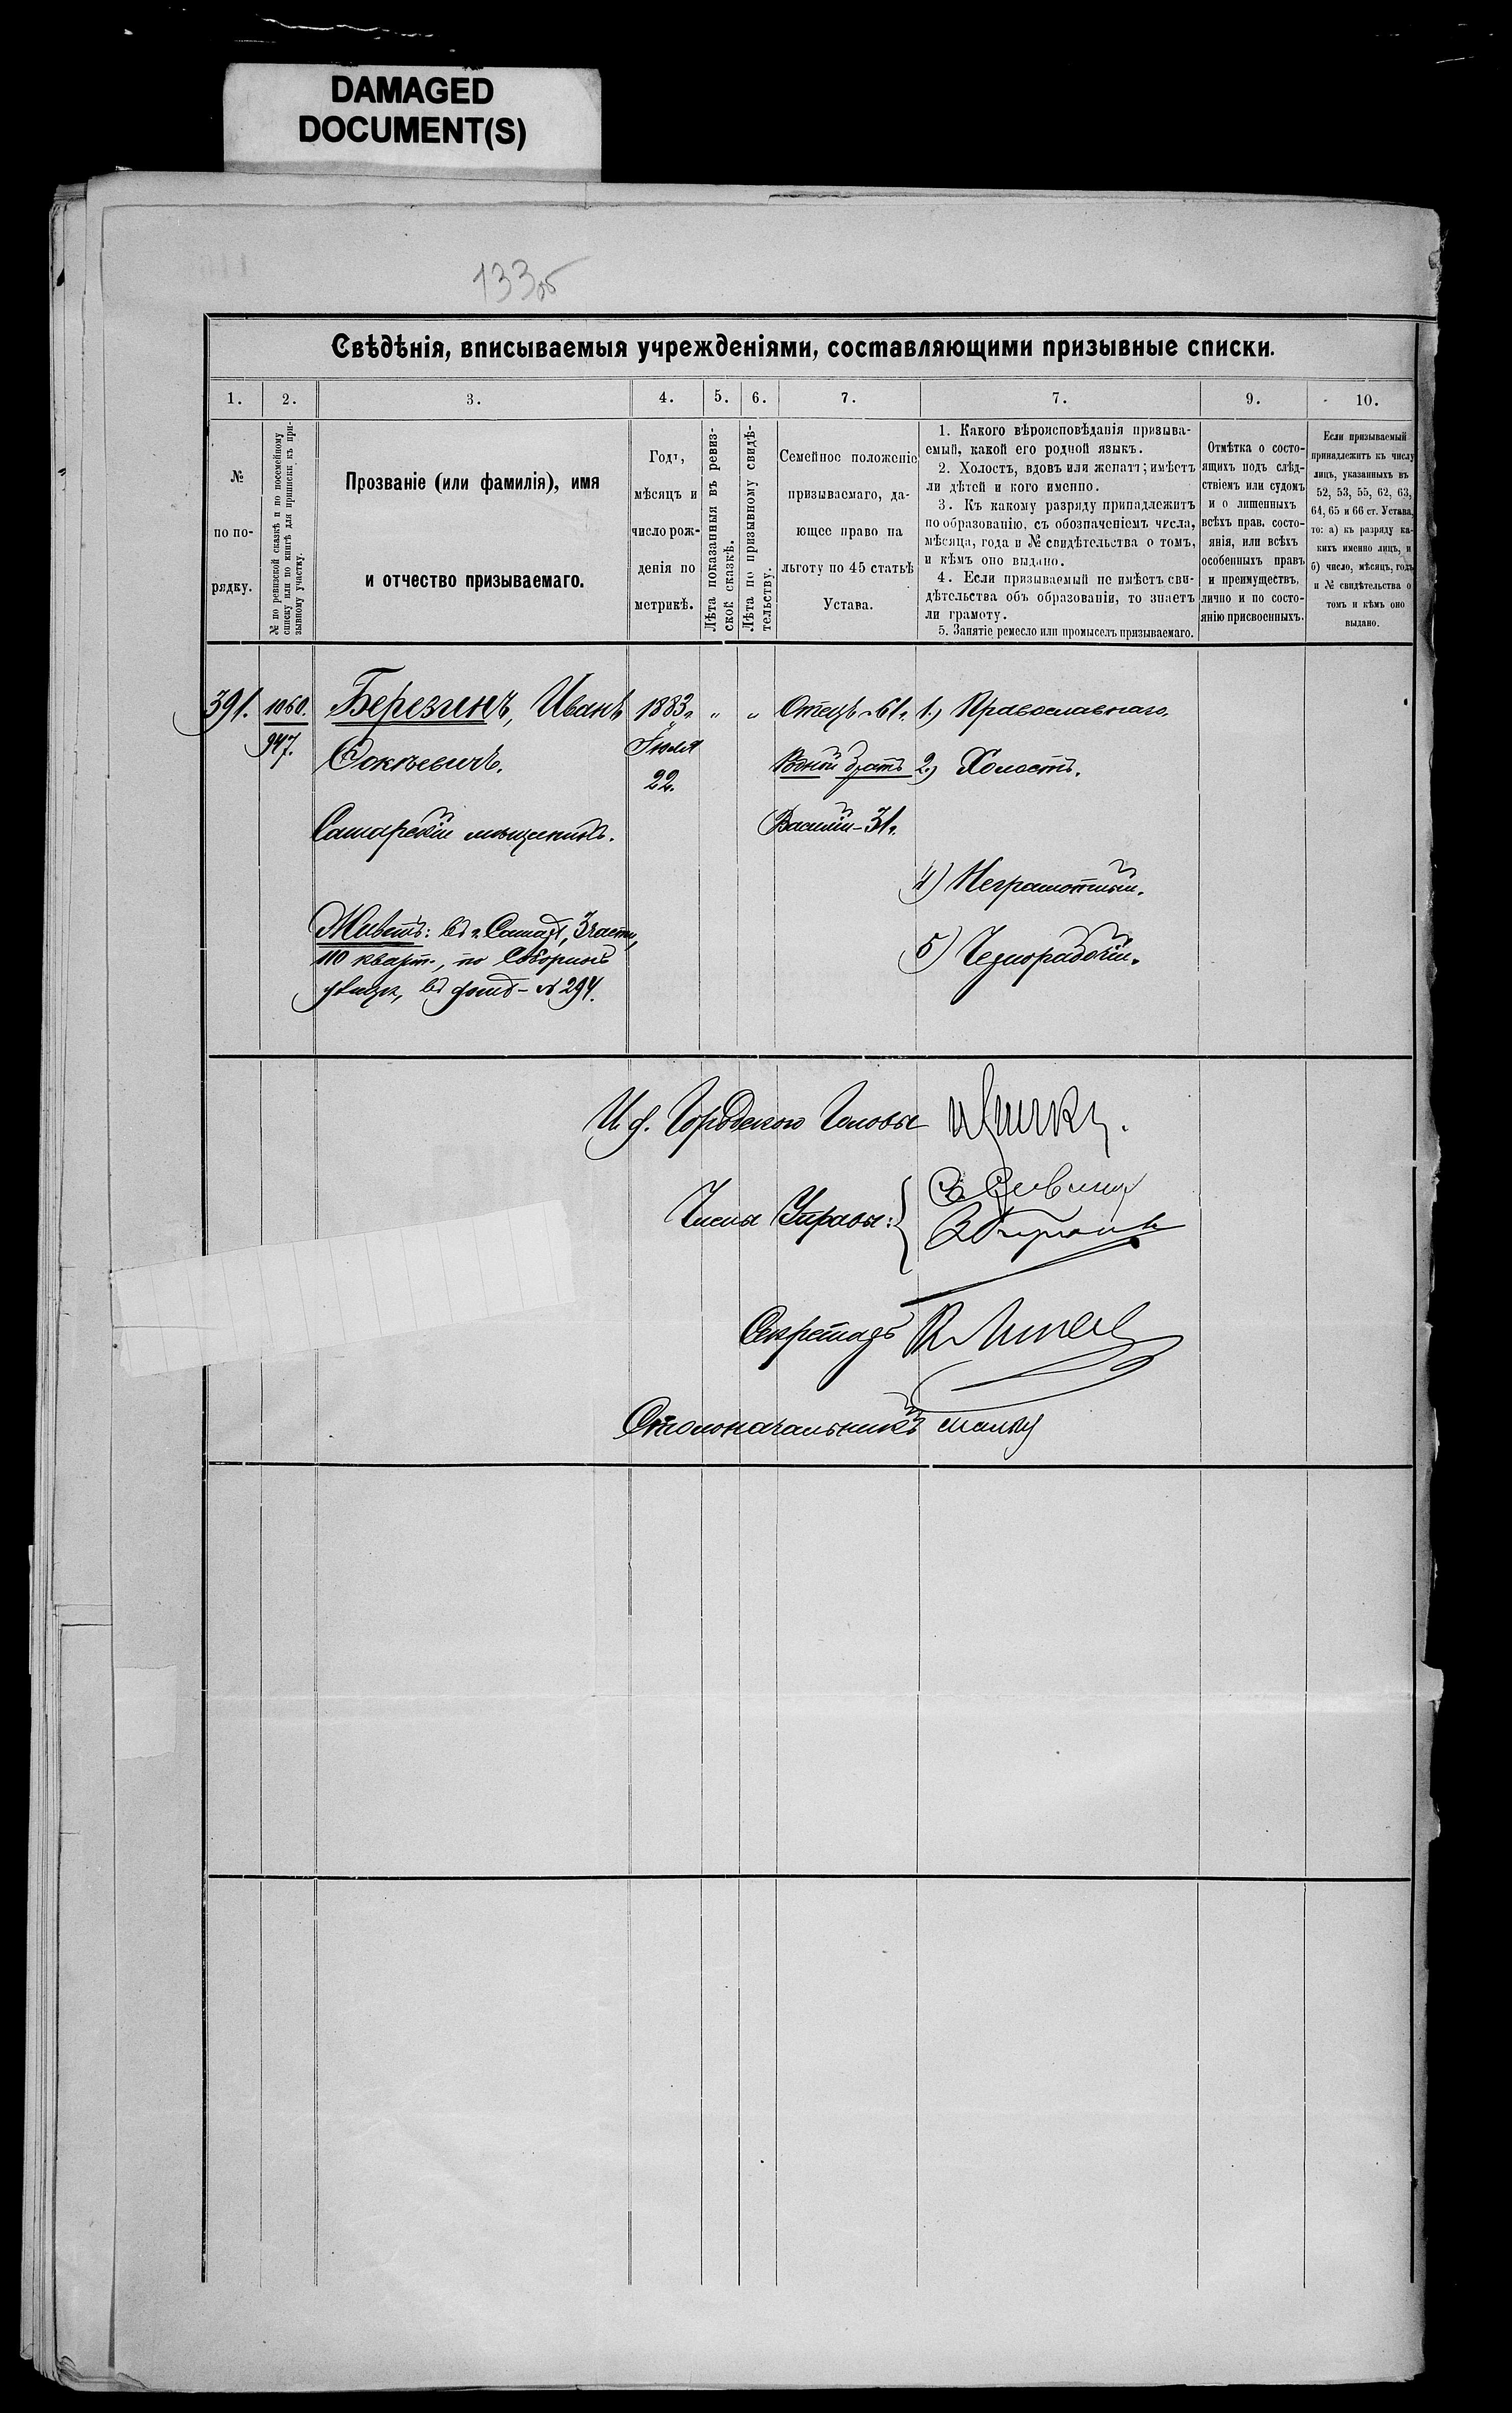 DAMAGED
DOCUMENT(S)
133об
Свѣдѣнія, вписываемыя учрежденіями, составляющими призывные списки.
1. 2. 3. 4. 5. 6. 7. 7. 9. 10.
№
по по-
рядку.
№ по ревизской сказкѣ и по посемейному
списку или по книгѣ для приписки къ при-
зывному участку.
Прозваніе (или фамилія), имя
и отчество призываемаго.
Годъ,
мѣсяцъ и
число рож-
денія по
метрикѣ.
Лѣта показанныя въ ревиз-
ской сказкѣ.
Лѣта по призывному свидѣ-
тельству.
Семейное положеніе
призываемаго, да-
ющее право на
льготу по 45 статьѣ
Устава.
1. Какого вѣроисповѣданія призыва-
емый, какой его родной языкъ.
2. Холостъ, вдовъ или женатъ; имѣетъ
ли дѣтей и кого именно.
3. Къ какому разряду принадлежитъ
по образованію, съ обозначеніемъ числа,
мѣсяца, года и № свидѣтельства о томъ,
и кѣмъ оно выдано.
4. Если призываемый не имѣетъ сви-
дѣтельства объ образованіи, то знаетъ
ли грамоту.
5. Занятіе ремесло или промыселъ призываемаго.
Отмѣтка о состо-
ящихъ подъ слѣд-
ствіемъ или судомъ
и о лишенныхъ
всѣхъ прав. состо-
янія, или всѣхъ
особенныхъ правъ
и преимуществъ,
лично и по состо-
янію присвоенныхъ.
Если призываемый
принадлежитъ къ числу
лицъ, указанныхъ въ
52, 53, 55, 62, 63,
64, 65 и 66 ст. Устава,
то: а) къ разряду ка-
кихъ именно лицъ, и
б) число, мѣсяцъ, годъ
и № свидѣтельства о
томъ и кѣмъ оно
выдано.
391. 1060.
947.
Березинъ, Иванъ
Самарскій мѣщанинъ.
Живетъ: въ г. Самарѣ, 3 части,
110 кварт., по Соборной
улицѣ, въ домѣ - № 294.
1883г.
Іюля
22.
" "
Отецъ - 61г.
Родной братъ
Василій - 31г.
1.) Православнаго.
2.) Холостъ.
4) Неграмотный.
5) Чернорабочій.
И. д. Городского Головы
Члены Управы:
Секретарь
Столоначальникъ